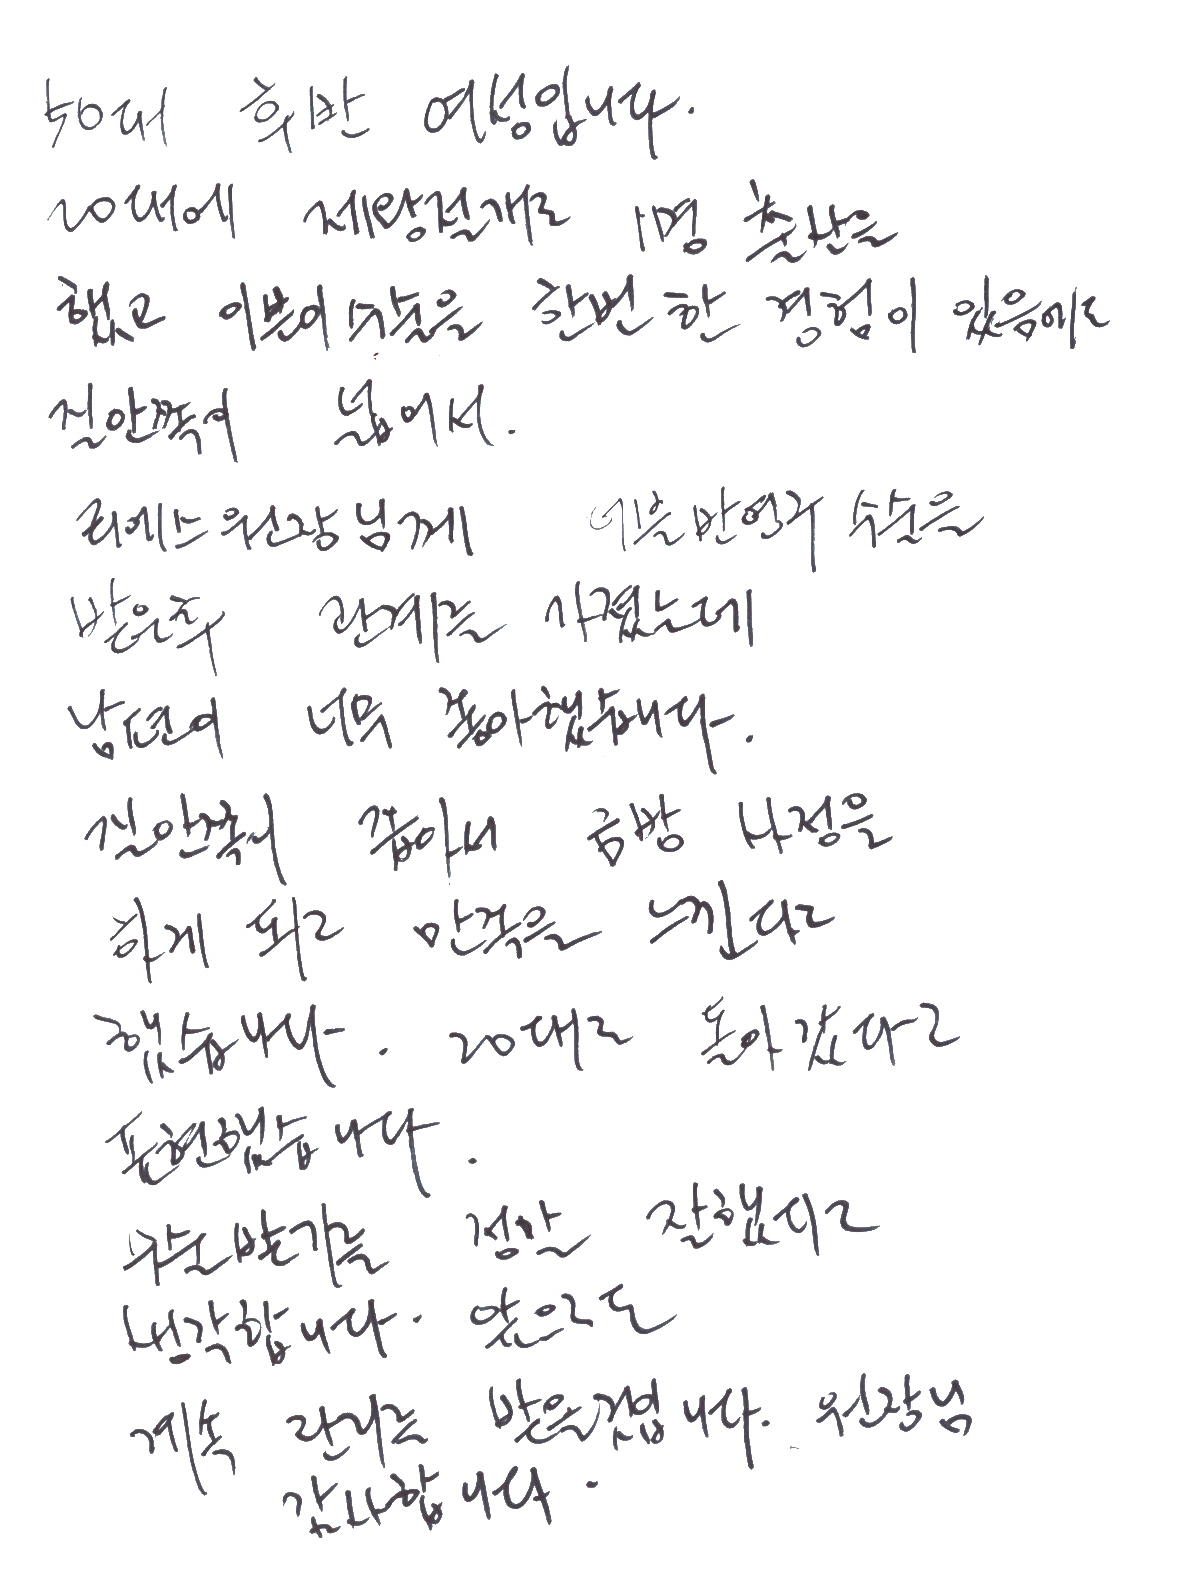 50대 후반 여성입니다.
20대에 제왕절개로 1명 출산을
했고 이쁜이수술을 한번 한 경험이 있음에도
질안쪽이 넓어서.
리에스원장님께 레이블반영구 수술을
받은후 관계를 가졌는데
남편이 너무 좋아했습니다.
질안쪽이 좁아서 금방 사정을
하게 되고 만족을 느낀다고
했습니다. 20대로 돌아갔다고
표현했습니다.
수술받기를 정말 잘했다고
생각합니다. 앞으로도
계속 관리를 받을것입니다. 원장님
감사합니다.